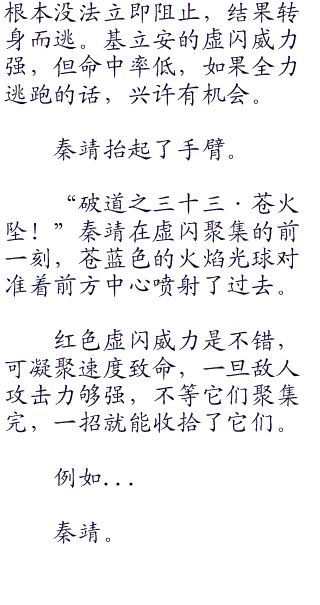 根本没法立即阻止，结果转
身而逃。基立安的虚闪威力
强，但命中率低，如果全力
逃跑的话，兴许有机会。
秦靖抬起了手臂。
“破道之三十三·苍火
坠！”秦靖在虚闪聚集的前
一刻，苍蓝色的火焰光球对
准着前方中心喷射了过去。
红色虚闪威力是不错，
可凝聚速度致命，一旦敌人
攻击力够强，不等它们聚集
完，一招就能收拾了它们。
例如...
秦靖。